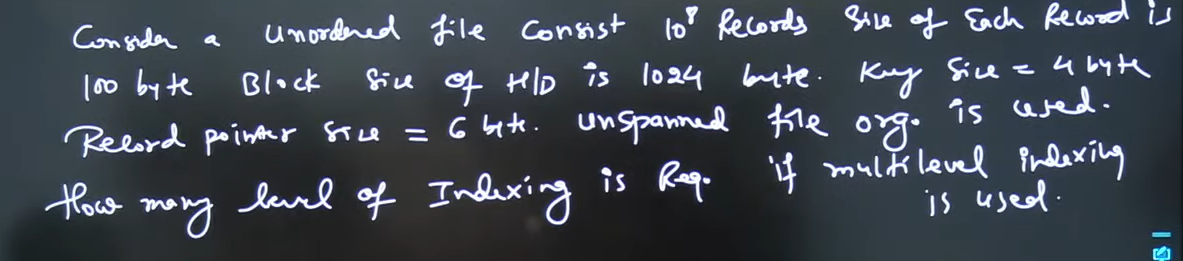 Consider a unordered file Consist 10⁸ Records Size of Each Record is
100 byte Block Size of H/D is 1024 byte. Key Size = 4 byte
Record pointer size = 6 byte. unspanned file org. is used.
How many level of Indexing is Req. if multilevel indexing
is used.